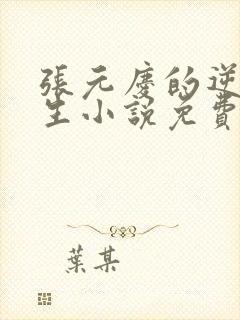 張元慶的逆
生小說免費
葉某